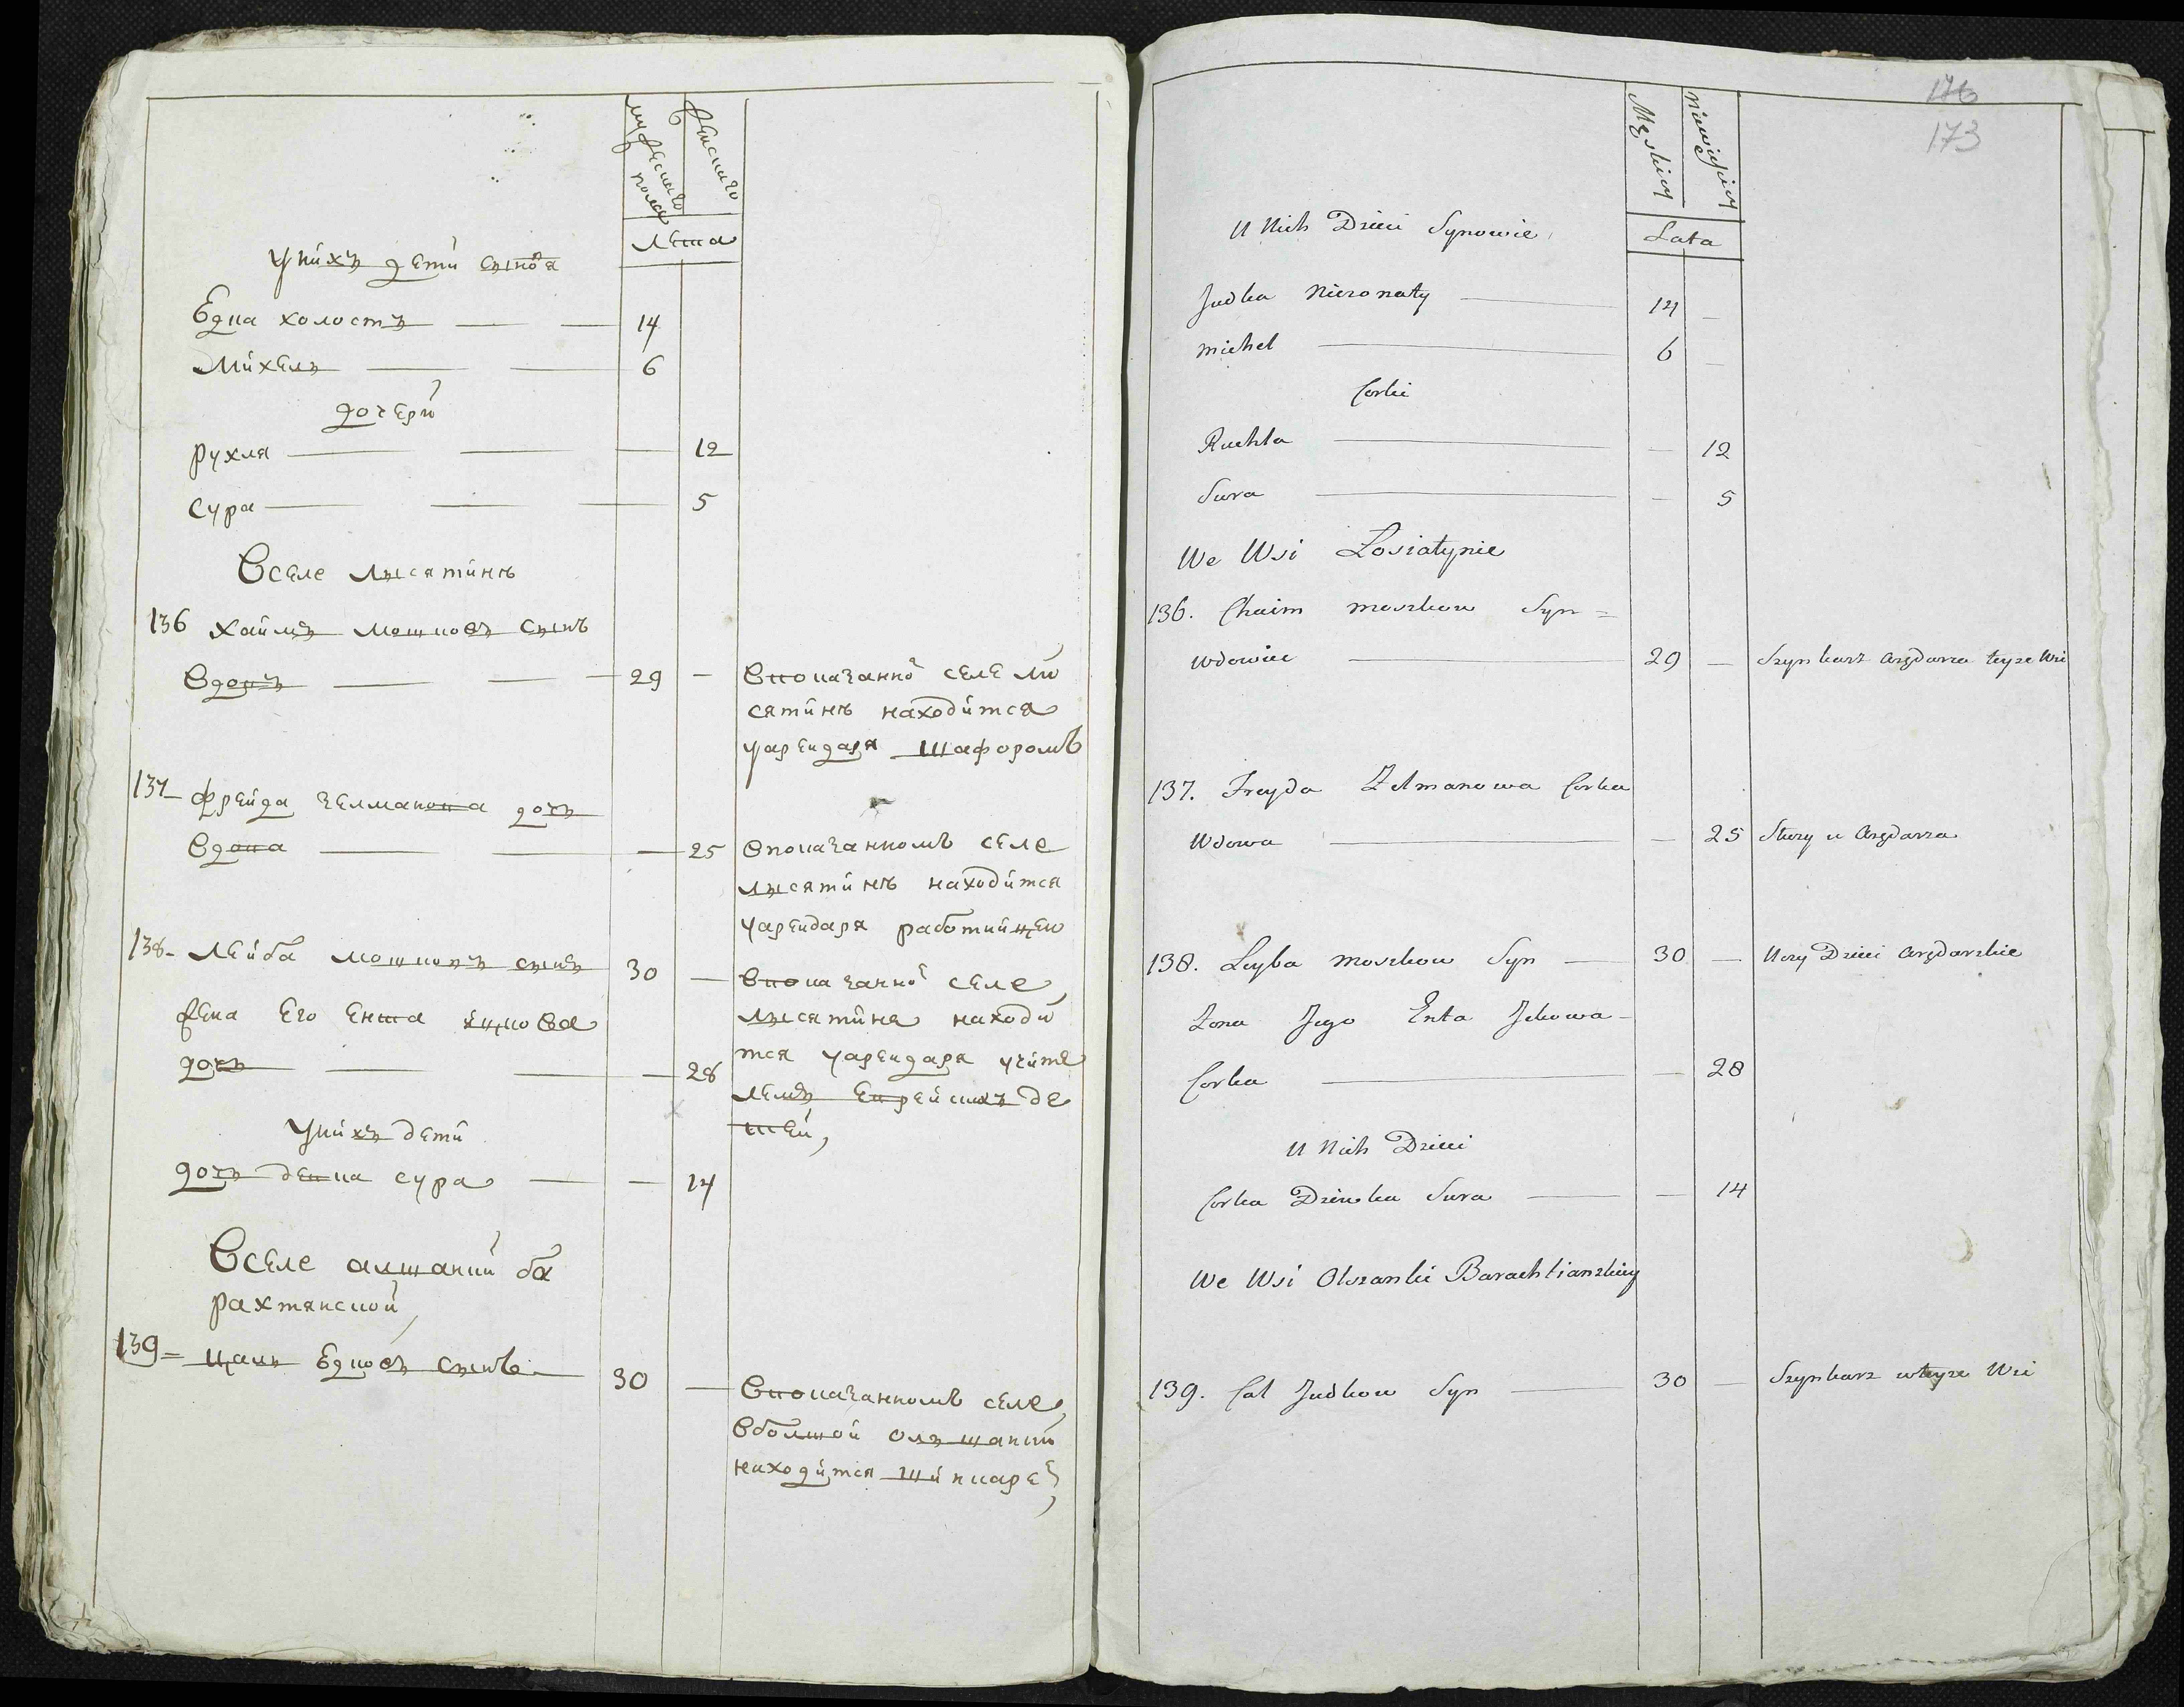 мужеска пола
женскаго
Лета
у нихъ дети сыновя
Едка холостъ 14
Михель 6
дочери
рухля 12
сура 5
Вселе лысятинѣ
136 хаимъ мошковъ сынъ
вдовъ 29 — Впоказанно селе ли
сятинѣ находится
уарендаря шафоромъ
137 фрейда зелманова дочь
вдова 25 Впоказанномъ селе
лысятинѣ находится
уарендаря работницею
138 Лейба мошковъ сынъ 30 — Впоказанно селе
жена Его Ента ицкова лысятине находи
дочь 28 тся уарендаря учите
лемъ Еврейскихъ де
тей,
У нихъ дети
дочь девка сура 14
Вселе алшанки ба
рахтянской,
139 цаль Едковъ сынъ 30 — Впоказанномъ селе
Вболшой олъшанки
находится шинкаре,
176
173
Męskiey
niewieściey
Lata
U Nich Dzieci Synowie
Judka Niezonaty 14 —
michel 6 —
Corki
Ruchla — 12
Sura — 5
We Wsi Losiatynie
136. Chaim moszkow Syn =
Wdowiec 29 — Szynkarz Arędarza teyze Wsi
137. Freyda Zelmanowa Corka
Wdowa — 25 Sluzy u Arędarza
138. Leyba moszkow Syn 30 — Uczy Dzieci Arędarskie
Zona Jego Enta Ickowa
Corka — 28
U Nich Dzieci
Corka Dziewka Sura — 14
We Wsi Olszanki Barachtianskiey
139. Cal Judkow Syn 30 — Szynkarz wteyze Wsi